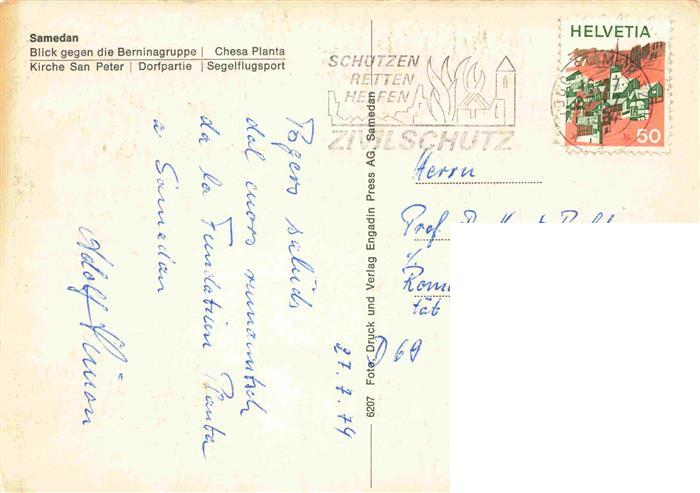 Samedan
Blick gegen die Berninagruppe | Chesa Planta
Kirche San Peter | Dorfpartie | Segelflugsport
SCHÜTZEN
RETTEN
HELFEN
ZIVILSCHUTZ
HELVETIA
50
6207 Foto, Druck und Verlag Engadin Press AG, Samedan
Herrn
Prof.
tät
D 69
salüds
dal cuors rumauntsch
da la Fundatiun Planta
a Samedan
Adolf
27.7.74